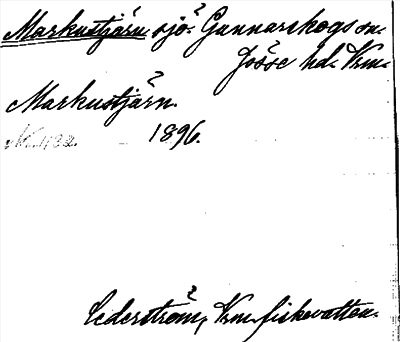 Markustjärn sjö. Gunnarskogs sn.
Jösse hd. Vrm.
Markustjärn.
1896.
Cederström, Vrm. fiskevatten.